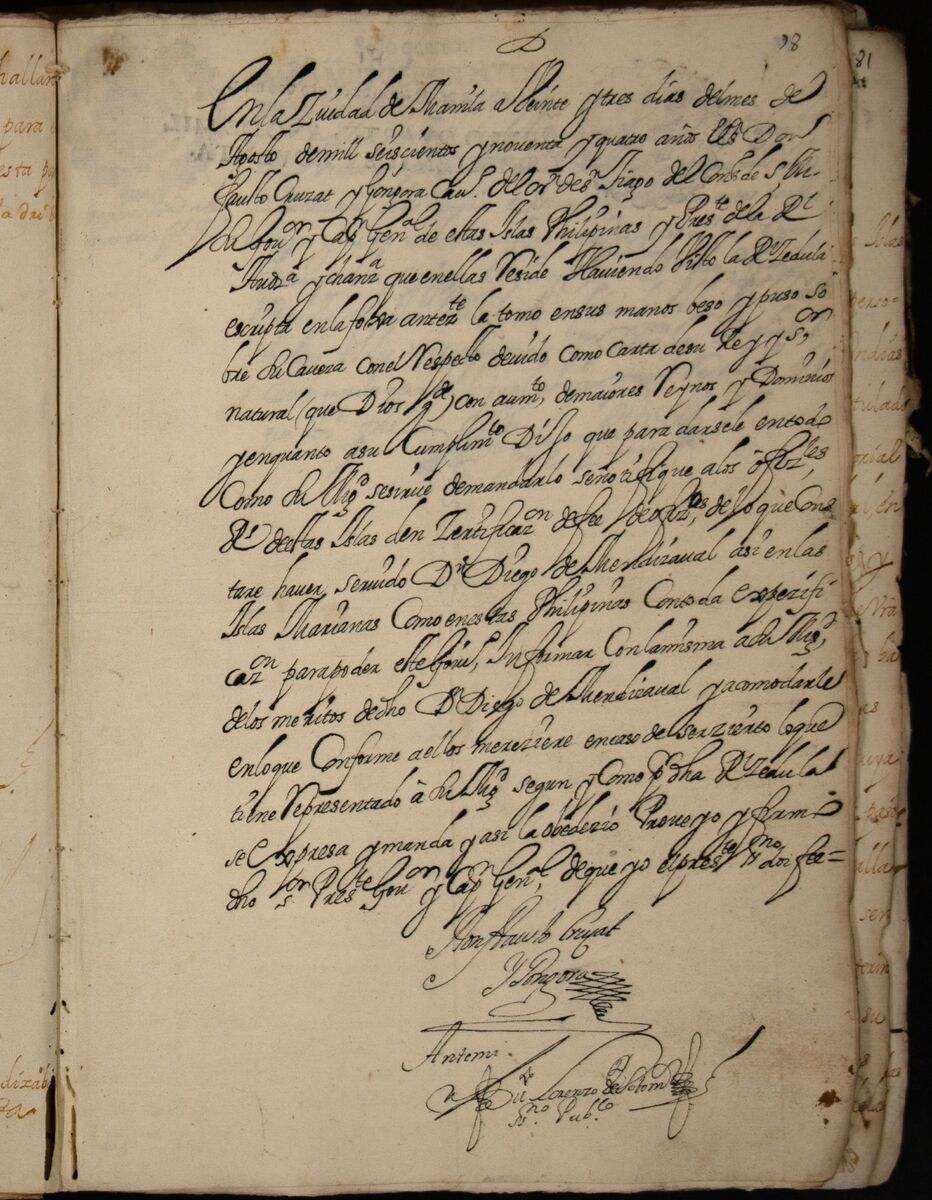 98
81
En la Ziudad de Manila a Veinte y tres dias del mes de
Agosto de mill seiscientos y noventa y quatro años El Sr Don
Fausto Cruzat y Gongora Cavo. del orn de Sn Tiago del Conso. de S. M.
su Gouor y Capn Genl de estas Islas Philipinas y Preste de la Rl
Audza y chanza que en ellas Reside Haviendo Visto la Rl Zedula
escripta en la foxa antezte la tomo en sus manos beso y puso so
bre su Cavera con el Respecto devido como Carta de su Rey y sor
natural (que Dios gde) con aumto, de maiores Reynos y Dominios
y en quanto a su Cumplimto Dijo que para darsele en todo
Como su Magd se sirue demandarlo se notifique a los ofizles
Rs destas Islas den Zertificazon de fee de ofizios, de lo que Cons
tare haver servido Dn Diego de Mendizaval asi en las
Islas Marianas Como en estas Philipinas Con toda Expezifi
cazon para poder este Gouno, Informar Con la misma a su Magd,
de los meritos de dho Dn Diego de Mendizaval y acomodarle
en lo que Conforme a ellos mereziere en caso de ser zierto lo que
tiene Representado à su Magd segun y Como pr dha Rl Zedula
se Expresa y manda y asi la obedezio Proveyo y firmó
dho sor Preste Gouor y Capn Genl, de que yo el preste Ssno doi fee=
Don Fausto Cruzat
y Gongora
Antemi
Lorenzo de
Ssno Pubco